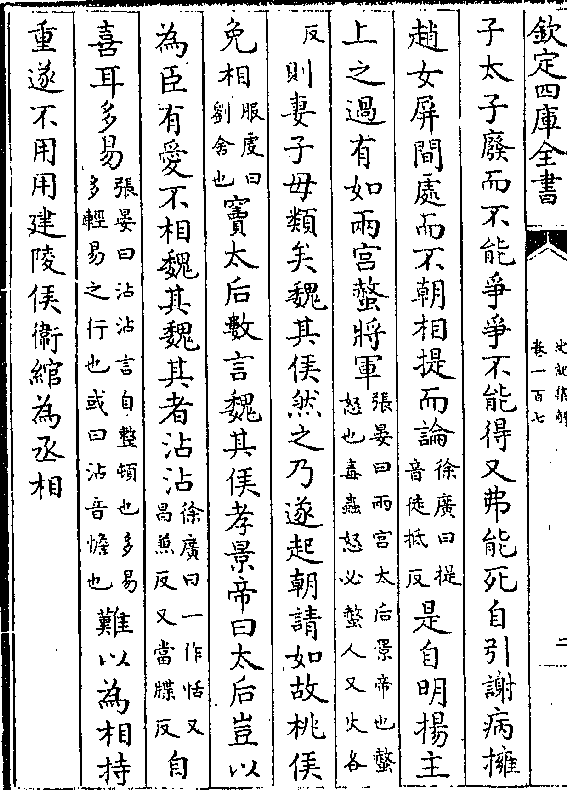 欽定四庫全書
史記集解
卷一百七
二
子太子廢而不能爭爭不能得又弗能死自引謝病擁
趙女屏間處而不朝相提而論徐廣曰提音徒抵反是自明揚主
上之過有如兩宮螫將軍張晏曰兩宮太后景帝也螫怒也毒蟲怒必螫人又火各
反則妻子毋類矣魏其侯然之乃遂起朝請如故桃侯
免相服虔曰劉舍也竇太后數言魏其侯孝景帝曰太后豈以
為臣有愛不相魏其魏其者沾沾徐廣曰一作怗又昌兼反又當牒反自
喜耳多易張晏曰沾沾言自整頓也多易多輕易之行也或曰沾音幨也難以為相持
重遂不用用建陵侯衛綰為丞相